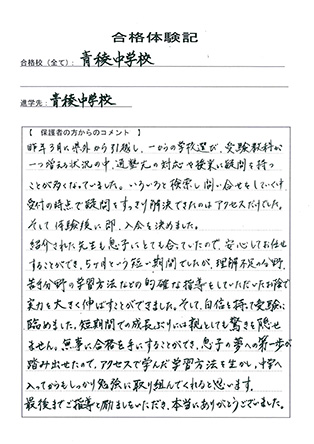 合格体験記
合格校(全て): 青稜中学校
進学先: 青稜中学校
【 保護者の方からのコメント 】
昨年3月に県外から引越し、一からの学校選び、受験教科が
一つ増える状況の中、通塾先の対応や授業に疑問を持つ
ことが多くなっていました。いろいろと検索し問い合せをしていく中、
受付の時点で疑問をすっきり解決できたのはアクセスだけでした。
そして体験後に即、入会を決めました。
紹介された先生も息子にとても合っていたので、安心してお任せ
することができ、5ヶ月という短い期間でしたが、理解不足の分野、
苦手分野の学習方法などの的確な指導をしていただいたお陰で
実力を大きく伸ばすことができました。そして、自信を持って受験に
臨めました。短期間での成長ぶりには親としても驚きを隠せ
ません。無事に合格を手にすることができ、息子の夢への第一歩が
踏み出せたので、アクセスで学んだ学習方法を生かし、中学へ
入ってからもしっかり勉強に取り組んでくれると思います。
最後までご指導と励ましをいただき、本当にありがとうございました。